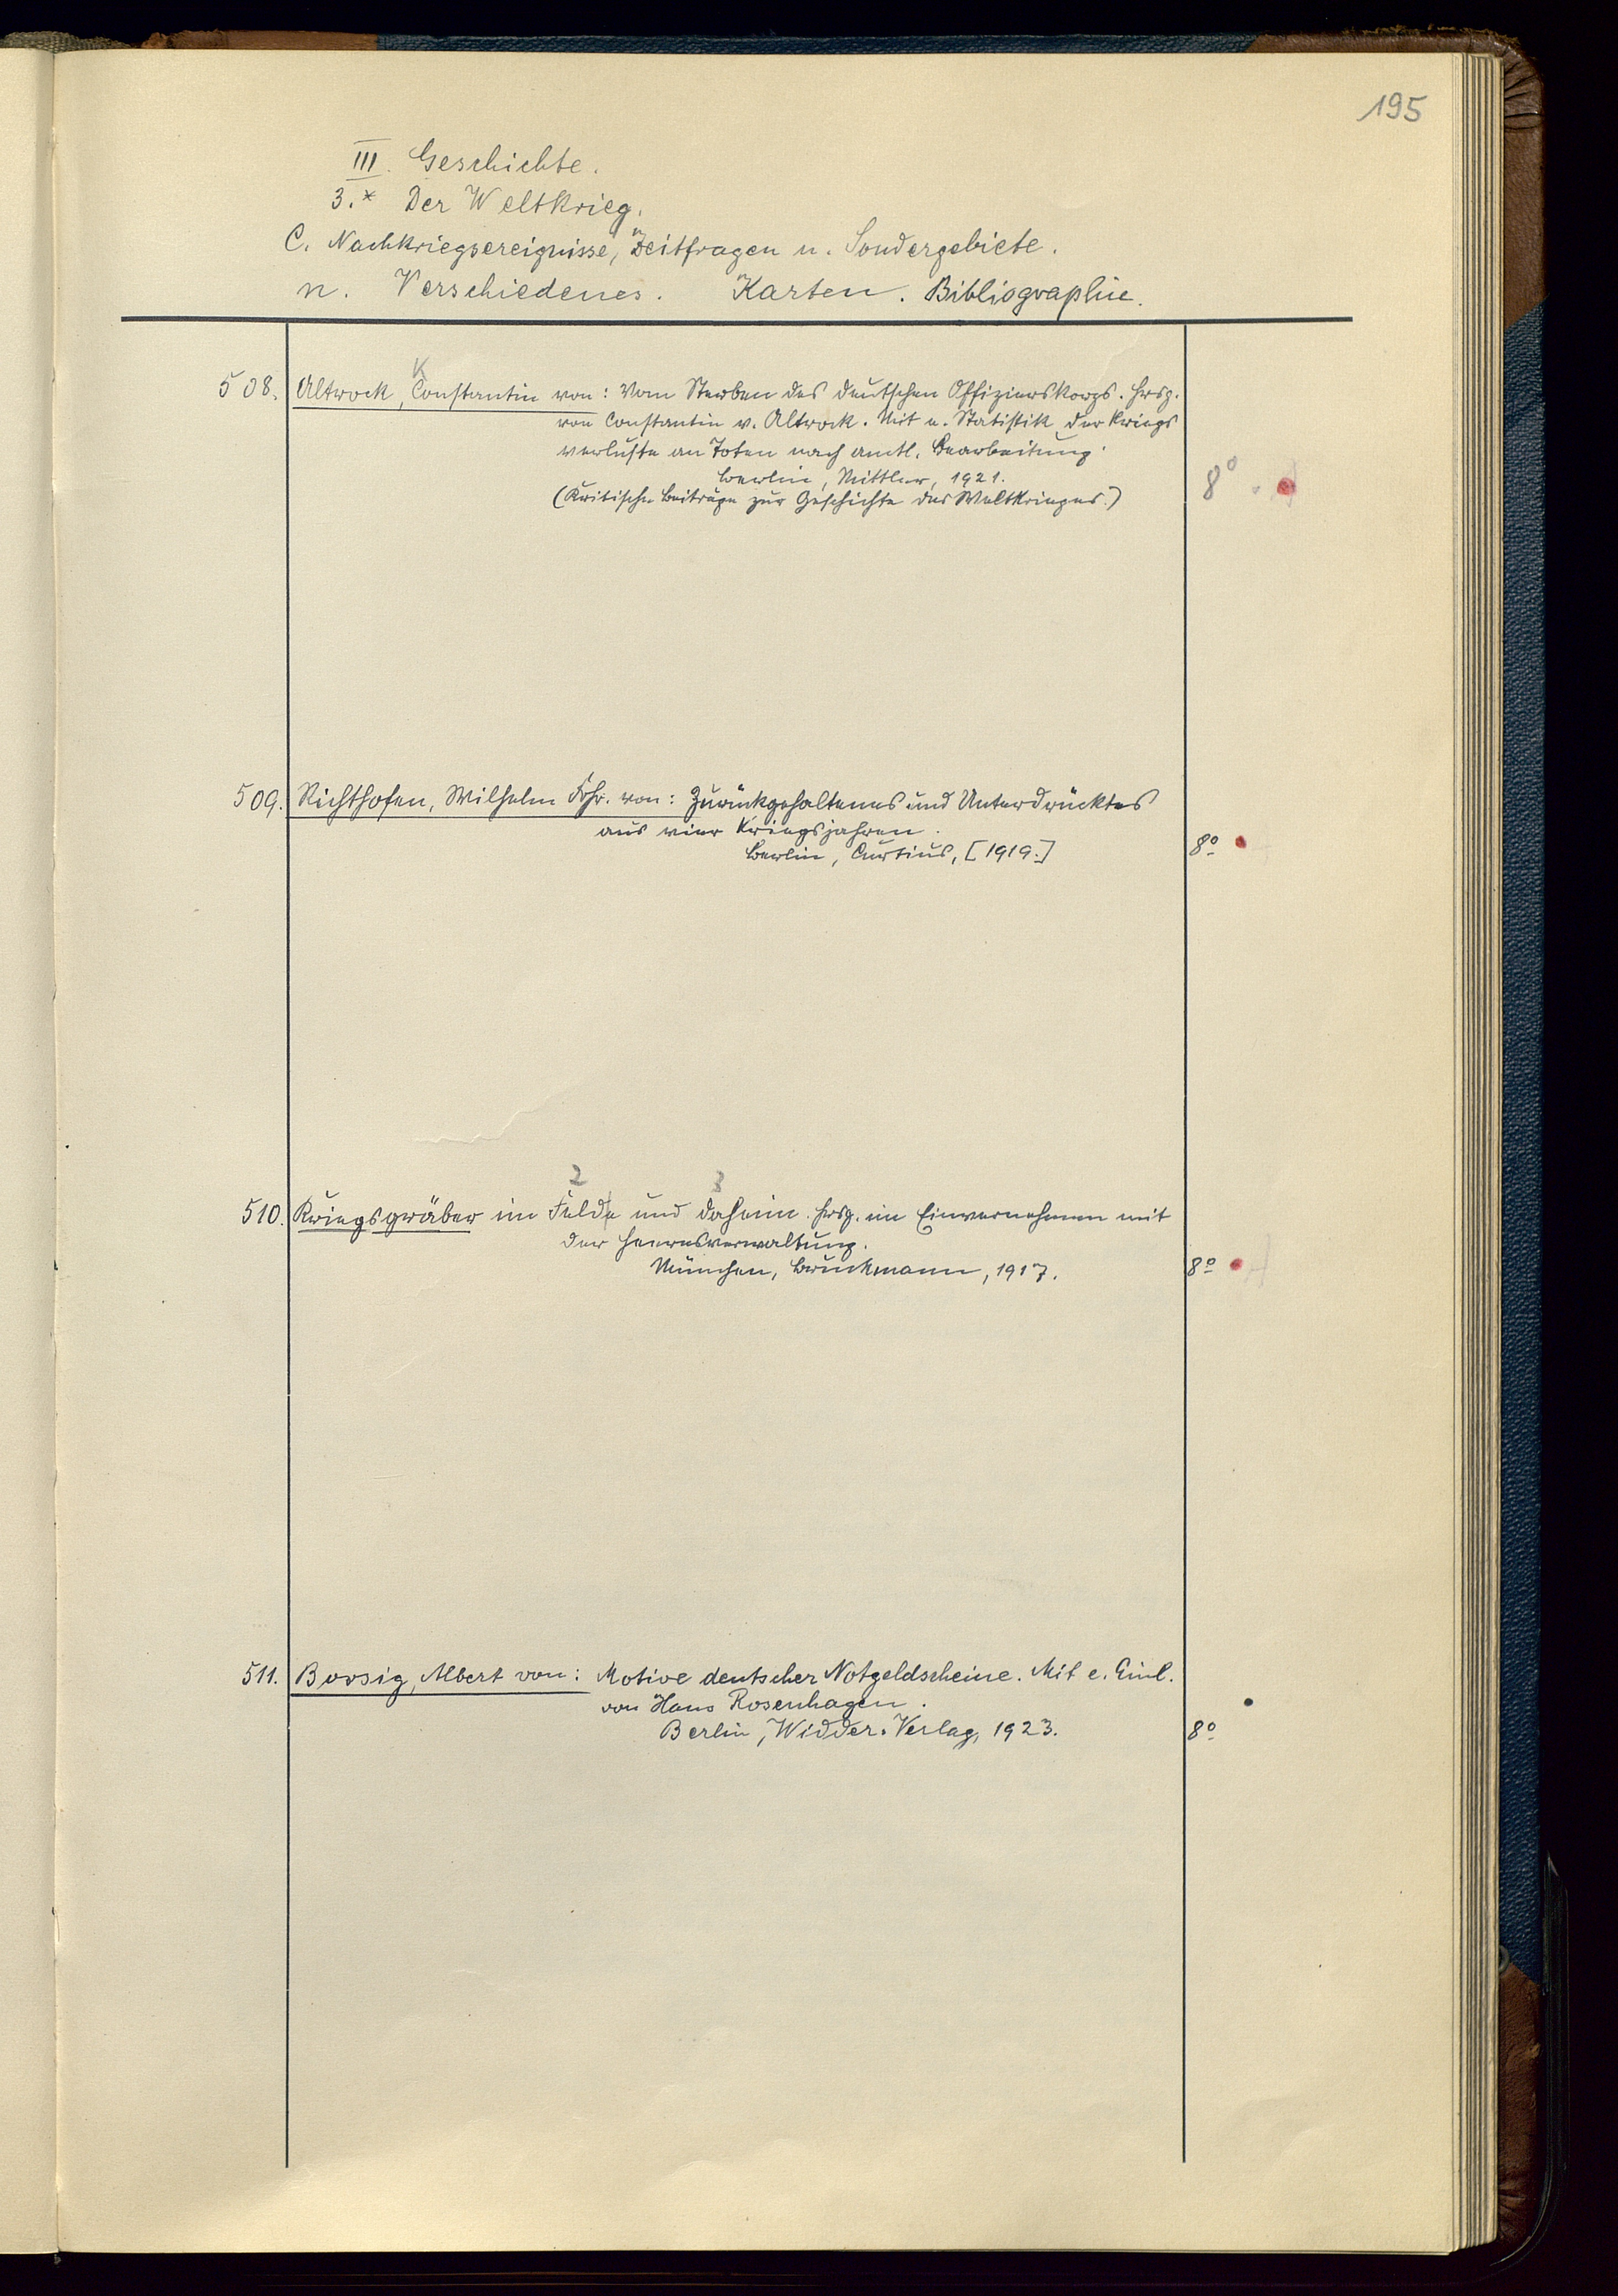 195
III. Geschichte.
3.* Der Weltkrieg.
C. Nachkriegsereignisse, Zeitfragen u. Sondergebiete.
n. Verschiedenes. Karten. Bibliographie.
K
508. Altrock, Constantin von: Vom Sterben des deutschen Offizierskorps. Hrsg.
von Constantin v. Altrock. Mit e. Statistik der Kriegs
verluste an Toten nach amtl. Bearbeitung.
Berlin, Mittler, 1921.
(Kritische Beiträge zur Geschichte des Weltkrieges.)
8°
509. Richthofen, Wilhelm Frhr. von: Zurückgehaltenes und Unterdrücktes
aus vier Kriegsjahren.
Berlin, Curtius, [1919.]
8°
2 3
510. Kriegsgräber im Felde und daheim. Hrsg. im Einvernehmen mit
der Heeresverwaltung.
München, Bruckmann, 1917.
8°
511. Borsig, Albert von: Motive deutscher Notgeldscheine. Mit e. Einl.
von Hans Rosenhagen.
Berlin, Widder-Verlag, 1923.
8°